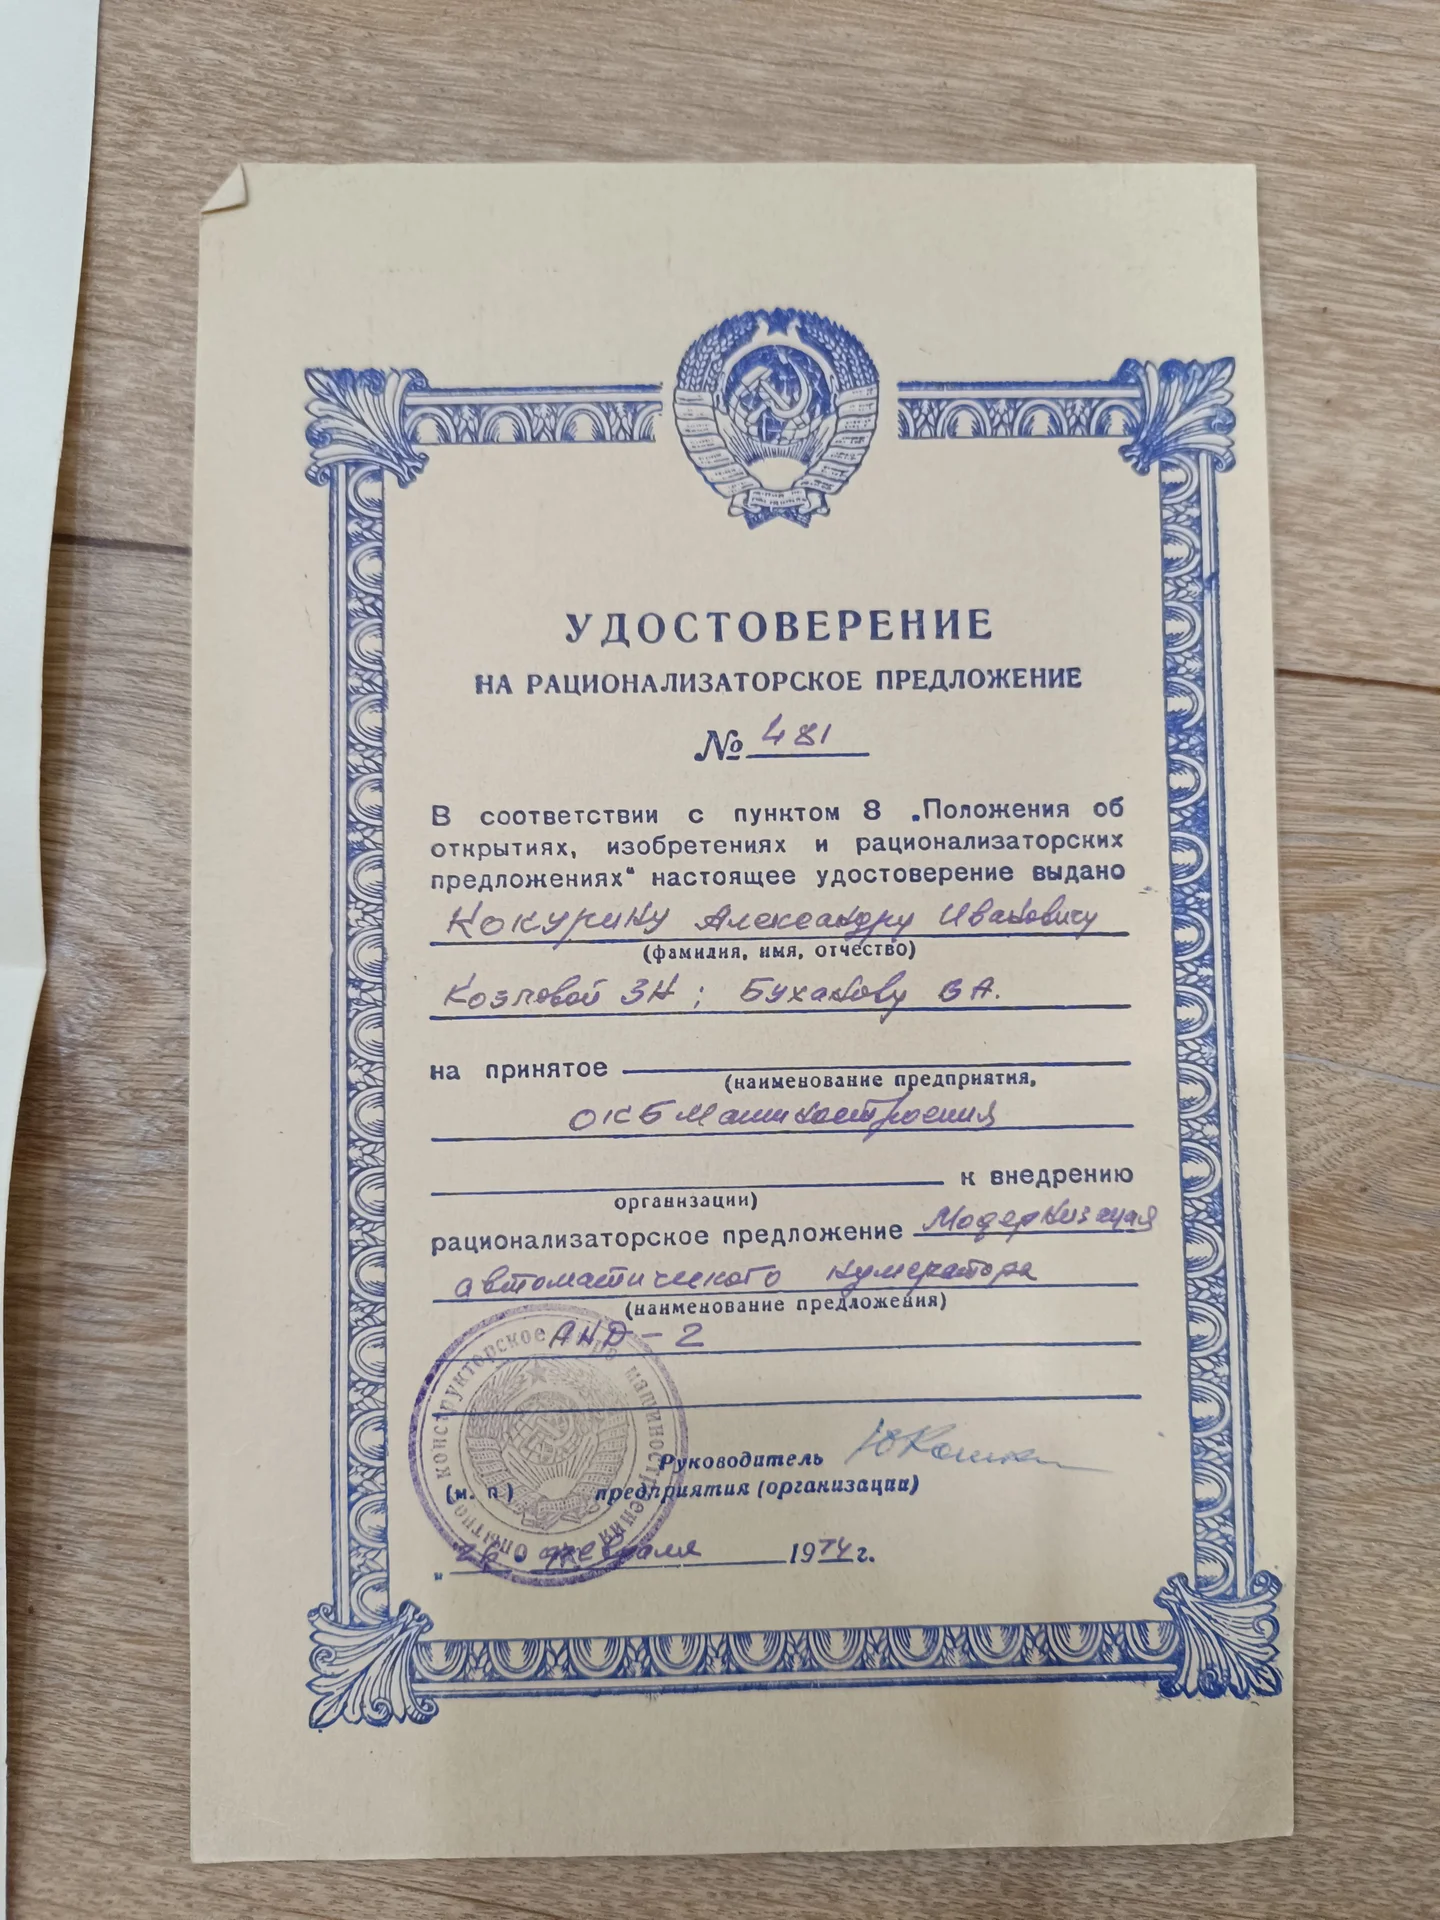 УДОСТОВЕРЕНИЕ
НА РАЦИОНАЛИЗАТОРСКОЕ ПРЕДЛОЖЕНИЕ
№ 481
В соответствии с пунктом 8 „Положения об
открытиях, изобретениях и рационализаторских
предложениях“ настоящее удостоверение выдано
Кокурину Александру Ивановичу
(фамилия, имя, отчество)
Козловой ЗН; Буханову ВА.
на принятое
(наименование предприятия,
ОКБ Машиностроения
к внедрению
организации)
рационализаторское предложение Модернизация
автоматического нумератора
(наименование предложения)
АНД-2
Опытное конструкторское бюро машиностроения
Руководитель
(м. п.) предприятия (организации)
„26" февраля 1974 г.